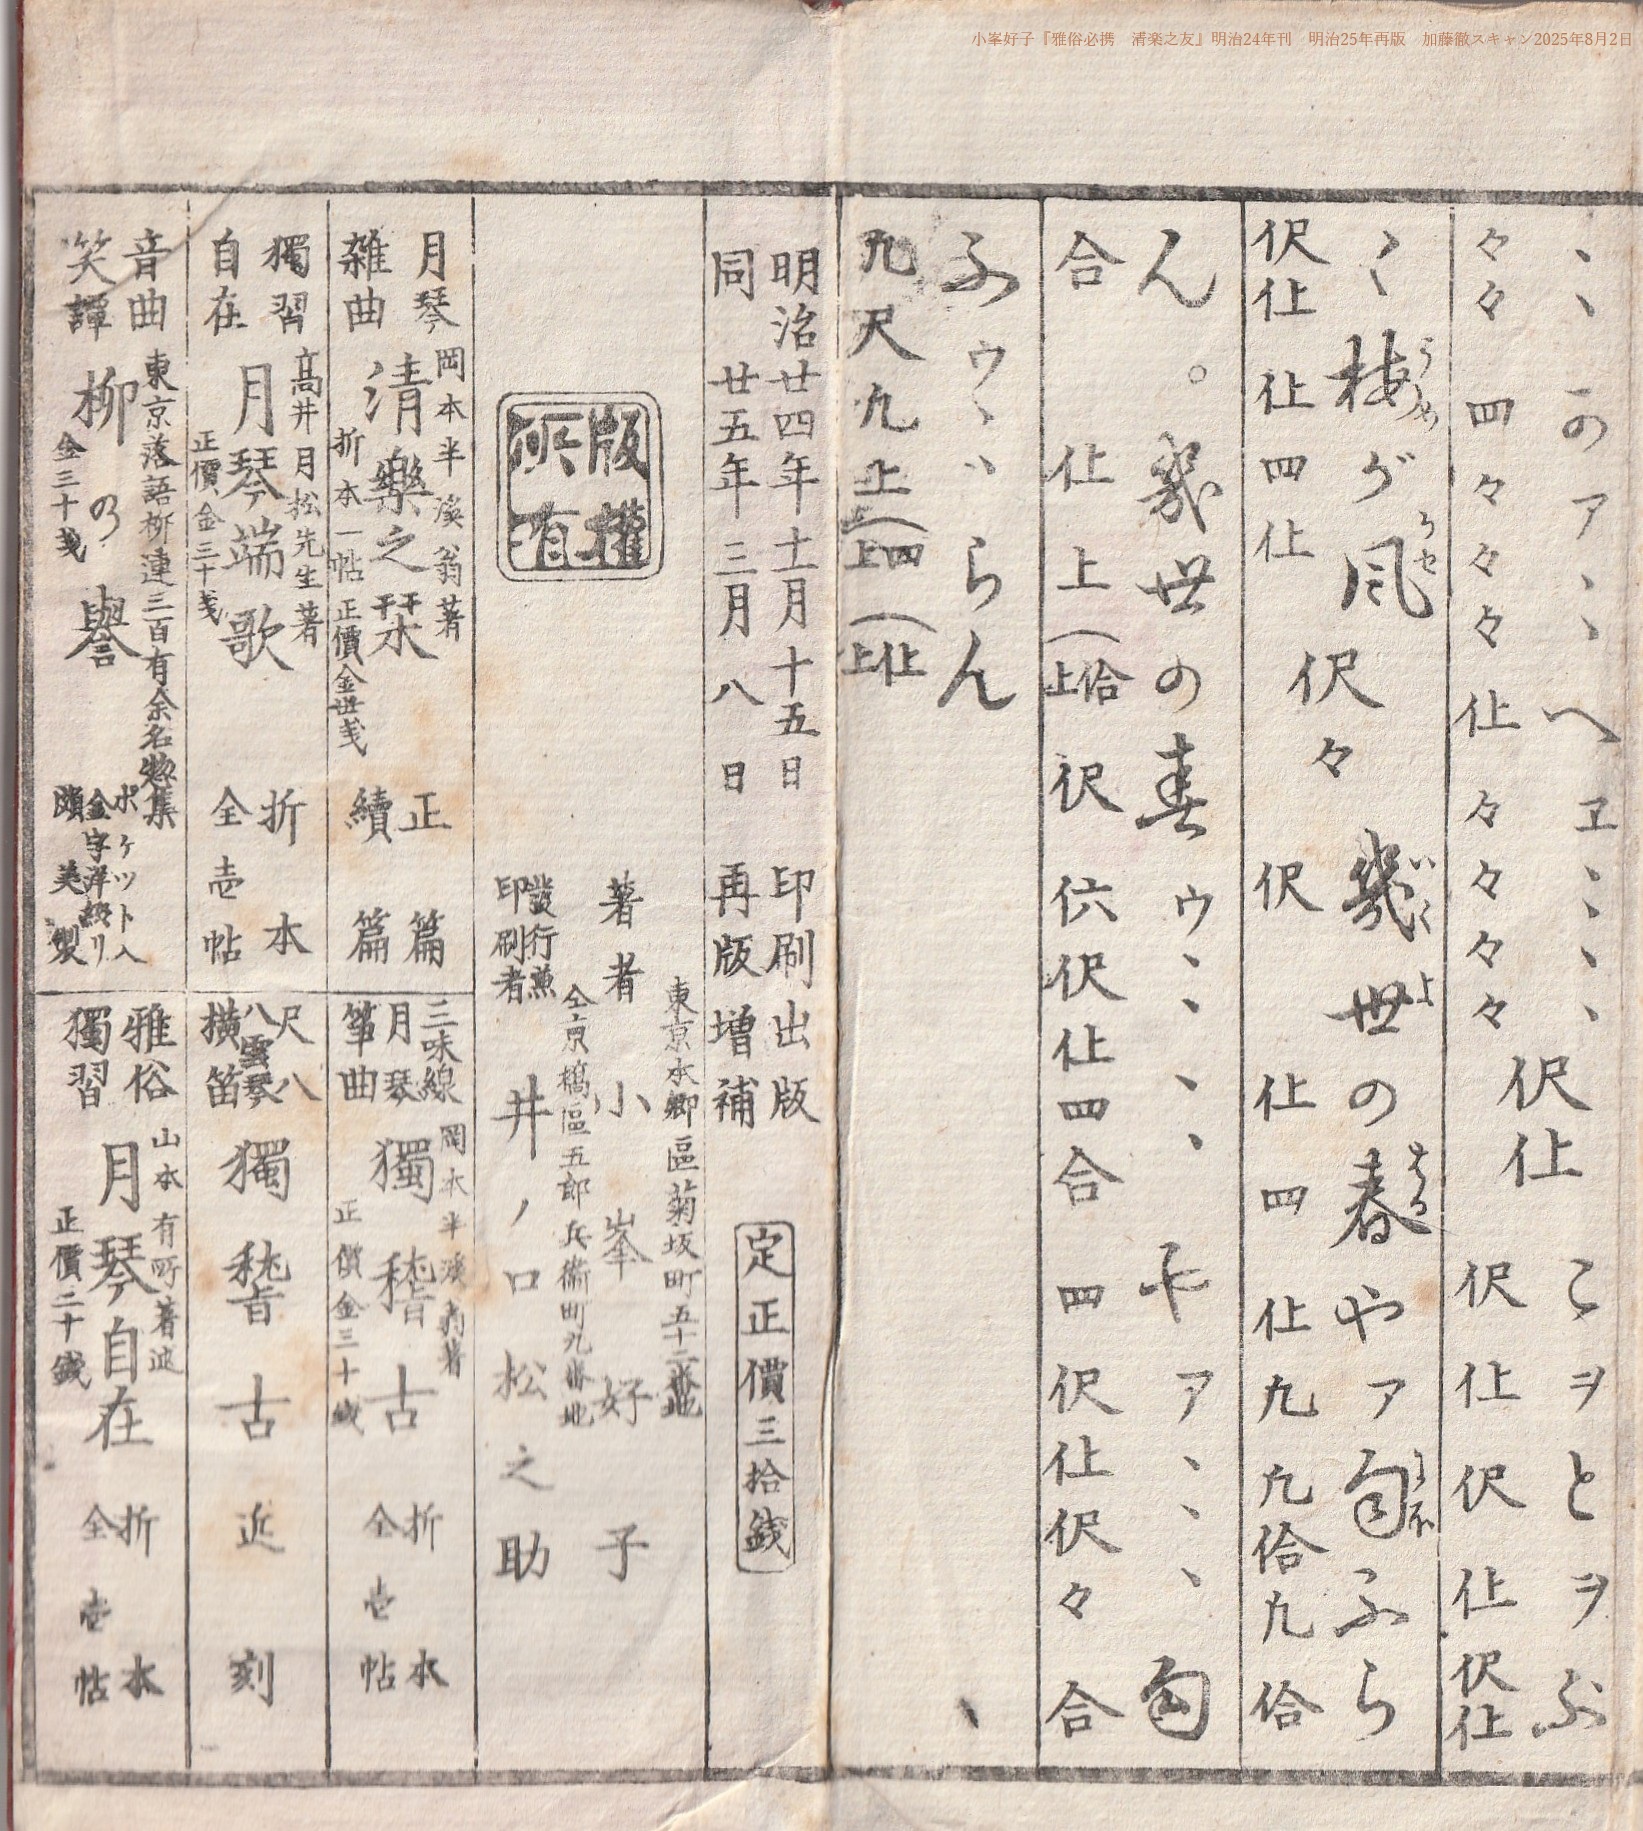 小峯好子『雅俗必携　清楽之友』明治24年刊　明治25年再版　加藤徹スキャン2025年8月2日
ヽヽのアヽヽへヱヽヽヽヽ こヲとヲぶ
々々 四々々々仩々々々々 伬仩 伬仩伬 仩伬仩
く梅が風 幾世の春やァ匂ふら
うめ かぜ いく よ はる にほ
伬仩 仩四仩 伬々 伬 仩四 仩九九佮九佮
ん。幾世の春ゥヽヽヽヽ 千アヽヽヽ匂
合 仩上(佮上 伬伬仩四合 四伬仩伬々合
ふゥヽヾらん ヽ
九尺九上(四上(仩上
明治廿四年十一月十五日 印刷出版
同 廿五年三月八日 再版増補
定正價三拾錢
版權所有
東京本郷區菊坂町五十二番地
著者 小峯好子
仝京橋區五郎兵衞町九番地
發行兼印刷者 井ノ口松之助
月琴雑曲 岡本半渓翁著 清樂之栞 折本一帖 正價金卅戔 正篇 續篇
三味線月琴筝曲 岡本半渓翁著 獨稽古 正價金三十戔 折本 全壱帖
獨習自在 高井月松先生著 月琴端歌 正價金三十戔 折本 全壱帖
尺八八雲琴横笛 獨稽古 近刻
音曲笑譚 東京落語柳連三百有余名惣集 柳の譽 金三十戔 ポケツト入金字洋綴リ頗美製
雅俗獨習 山本有所著述 月琴自在 正價二十錢 折本 全壱帖